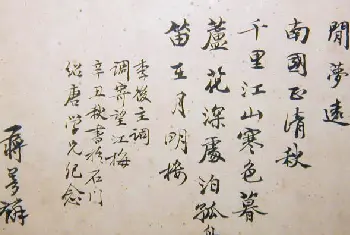 閒夢遠
南國正清秋
千里江山寒色暮
蘆花深處泊孤舟
笛在月明樓
李後主詞
調寄望江梅
辛丑秋書於石门
紹唐學兄纪念
蔣夢麟